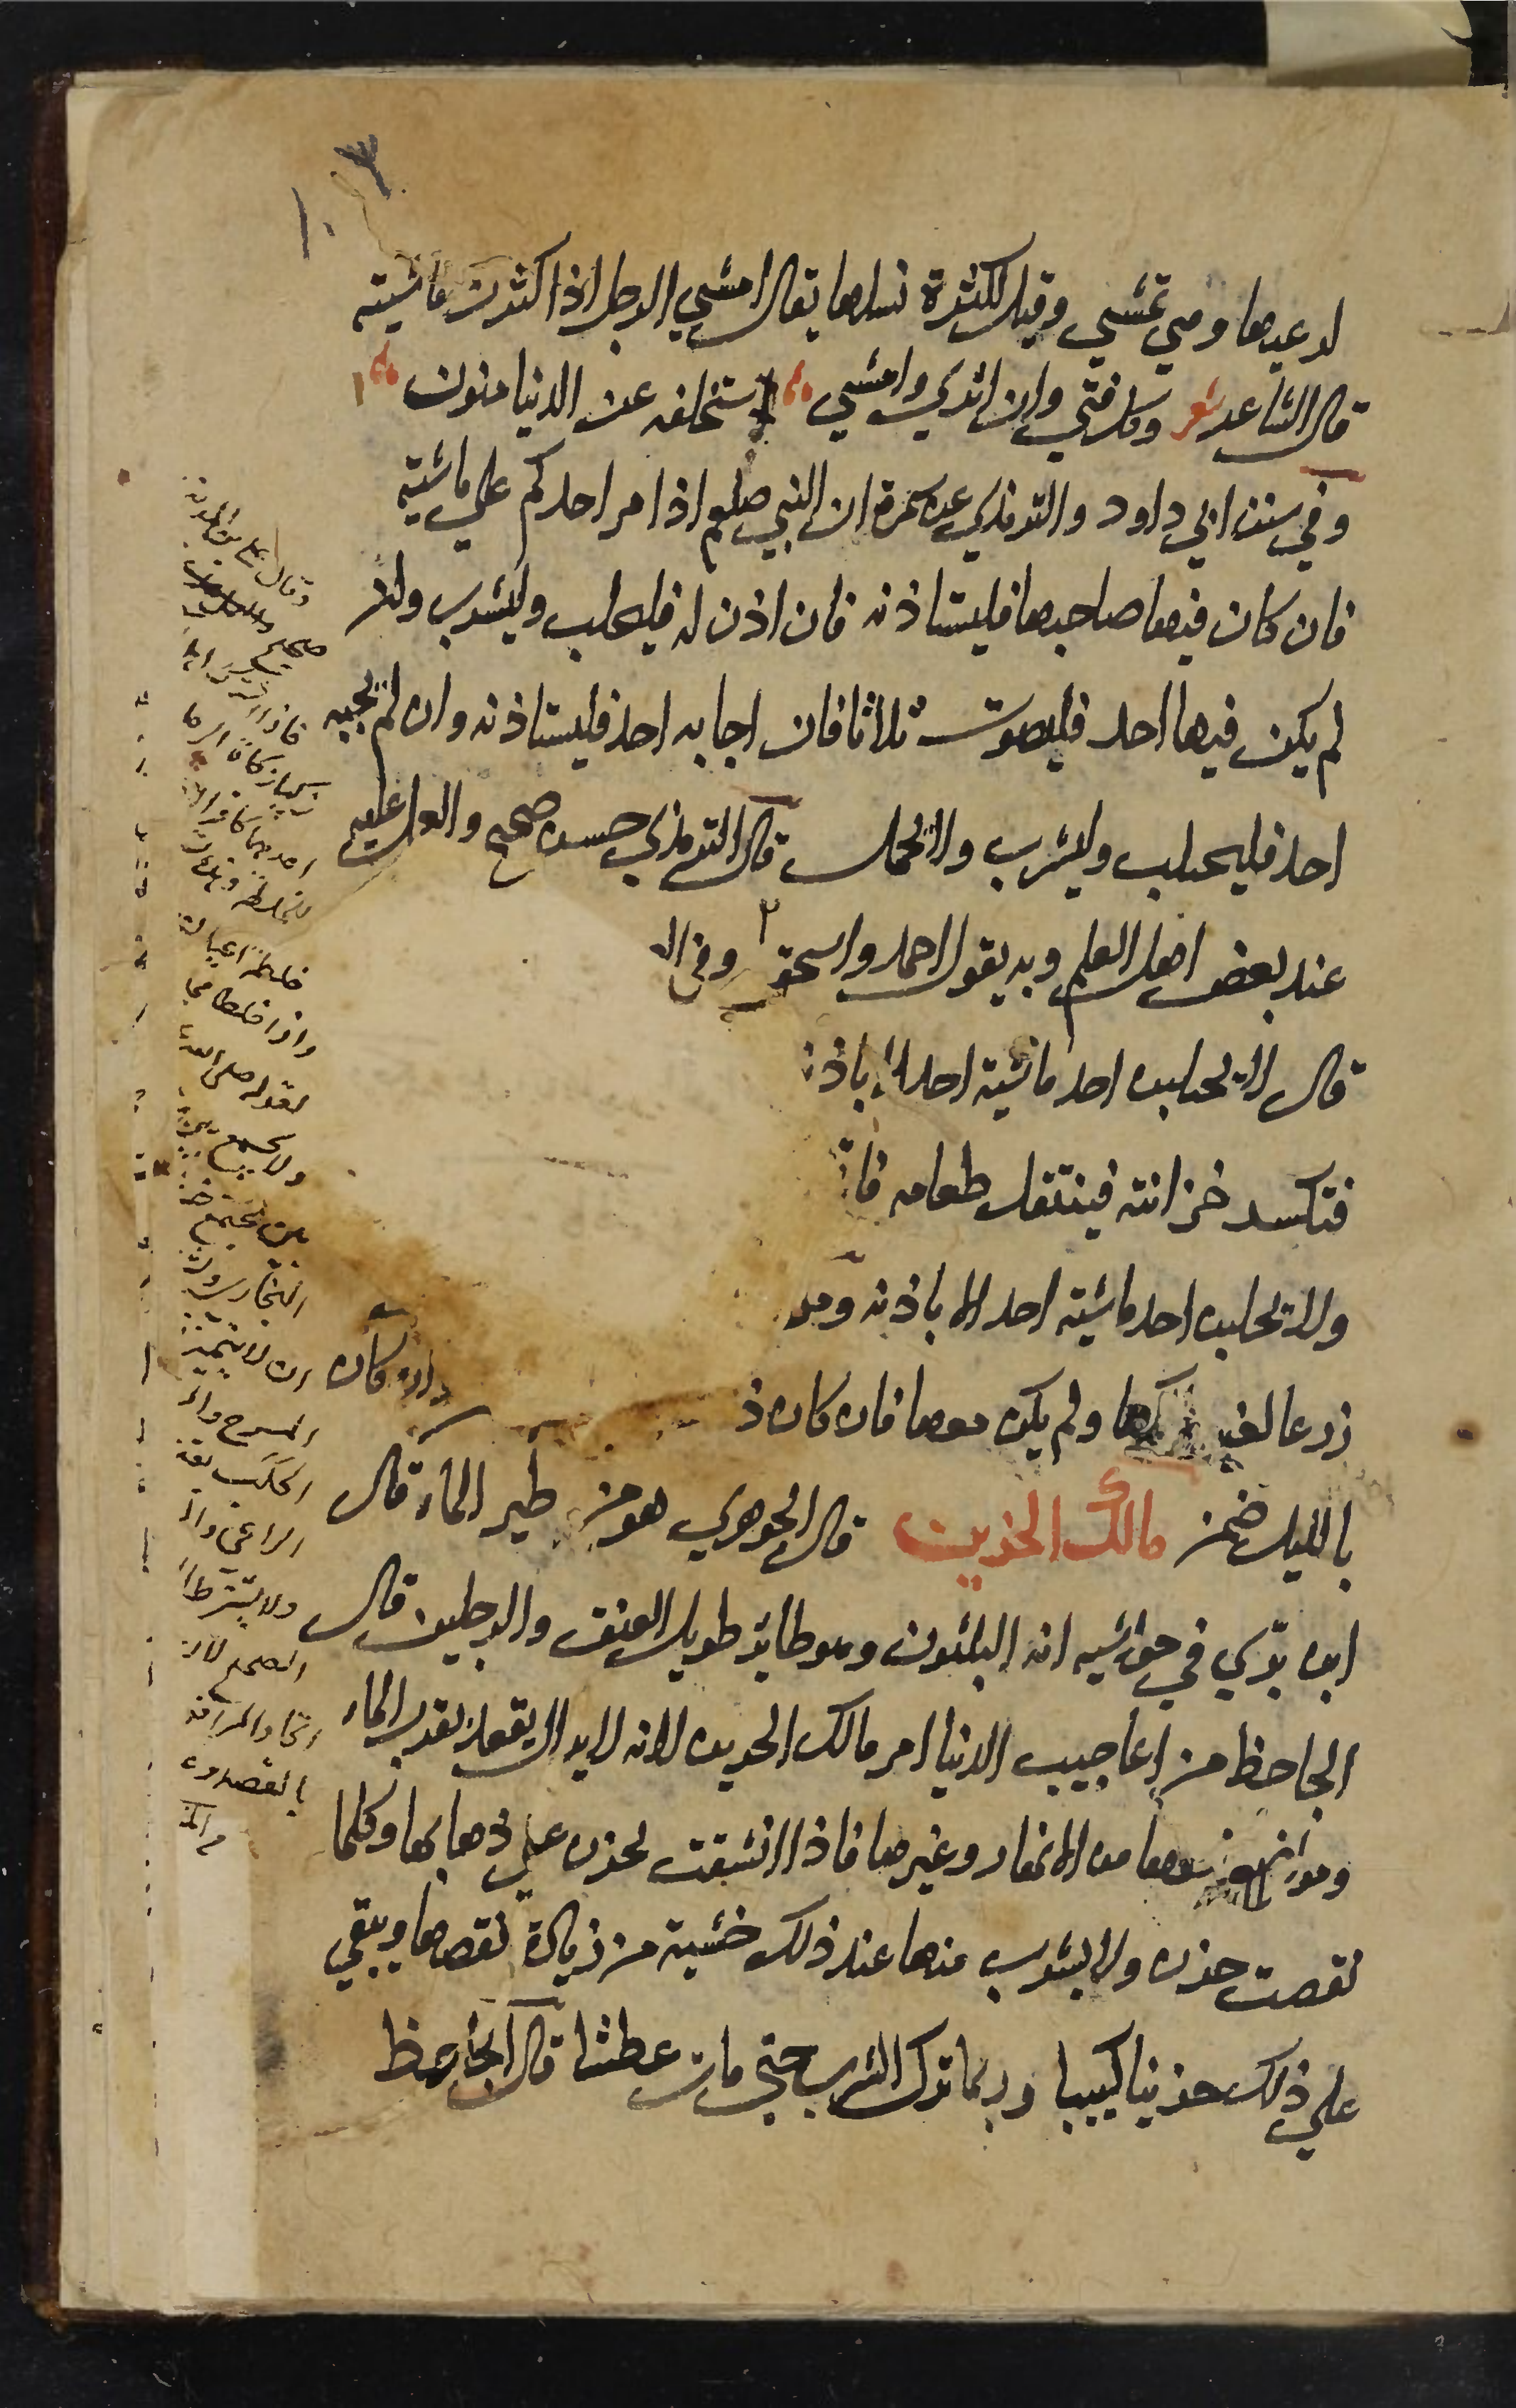 ١٠٣
لرعيها وهي تمشي وقيل لكثرة نسلها يقال امشي الرجل اذا كثرت ماشيته
قال الشاعر شعر وكل فتي وان اثري وامشي ستخلفه عن الدنيا منون
وفي سنن ابي داود والترمذي عن سمرة ان النبي صلعم اذا مر احدكم علي ماشية
فان كان فيها صاحبها فليستاذنه فان اذن له فليحلب وليشرب وان
لم يكن فيها احد فليصوت ثلاثا فان اجابه احد فليستاذنه وان لم يجبه
احد فليحتلب وليشرب ولا يحمل قال الترمذي حسن صحيح والعمل عليه
عند بعض اهل العلم وبه يقول احمد واسحق ٢ وفي ال
قال لا يحلبن احد ماشية احد الا باذن
فتكسر خزانته فينتقل طعامه فا
ولا يحلبن احد ماشية احد الا باذنه ومر
زرعا لغير ولم يكن معها فان كان ذ وان كان
بالليل ضمن مالك الحزين قال الجوهري هو من طير الماء قال
ابن بري في حواشيه انه البلشون وهو طائر طويل العنق والرجلين قال
الجاحظ من اعاجيب الدنيا امر مالك الحزين لانه لا يزال يقعد بقرب الماء
ومواضع نبعها من الانهار وغيرها فاذا انشفت يحزن علي ذهابها وكلما
نقصت حزن ولا يشرب منها عند ذلك خشية من زيادة نقصها ويبقي
علي ذلك حزينا كئيبا وربما ترك الشرب حتي مات عطشا قال الجاحظ
وقال علي بن المديني
صحيح
احدهما كافرا
خلطة اعيان
واذا خلطا في
لقوله صلى الله
ولا يجمع بين
بين مجتمع خ
البخاري
ان لا يتميز
المسرح وال
الراعي وال
ولا يشترط
الصحيح لان